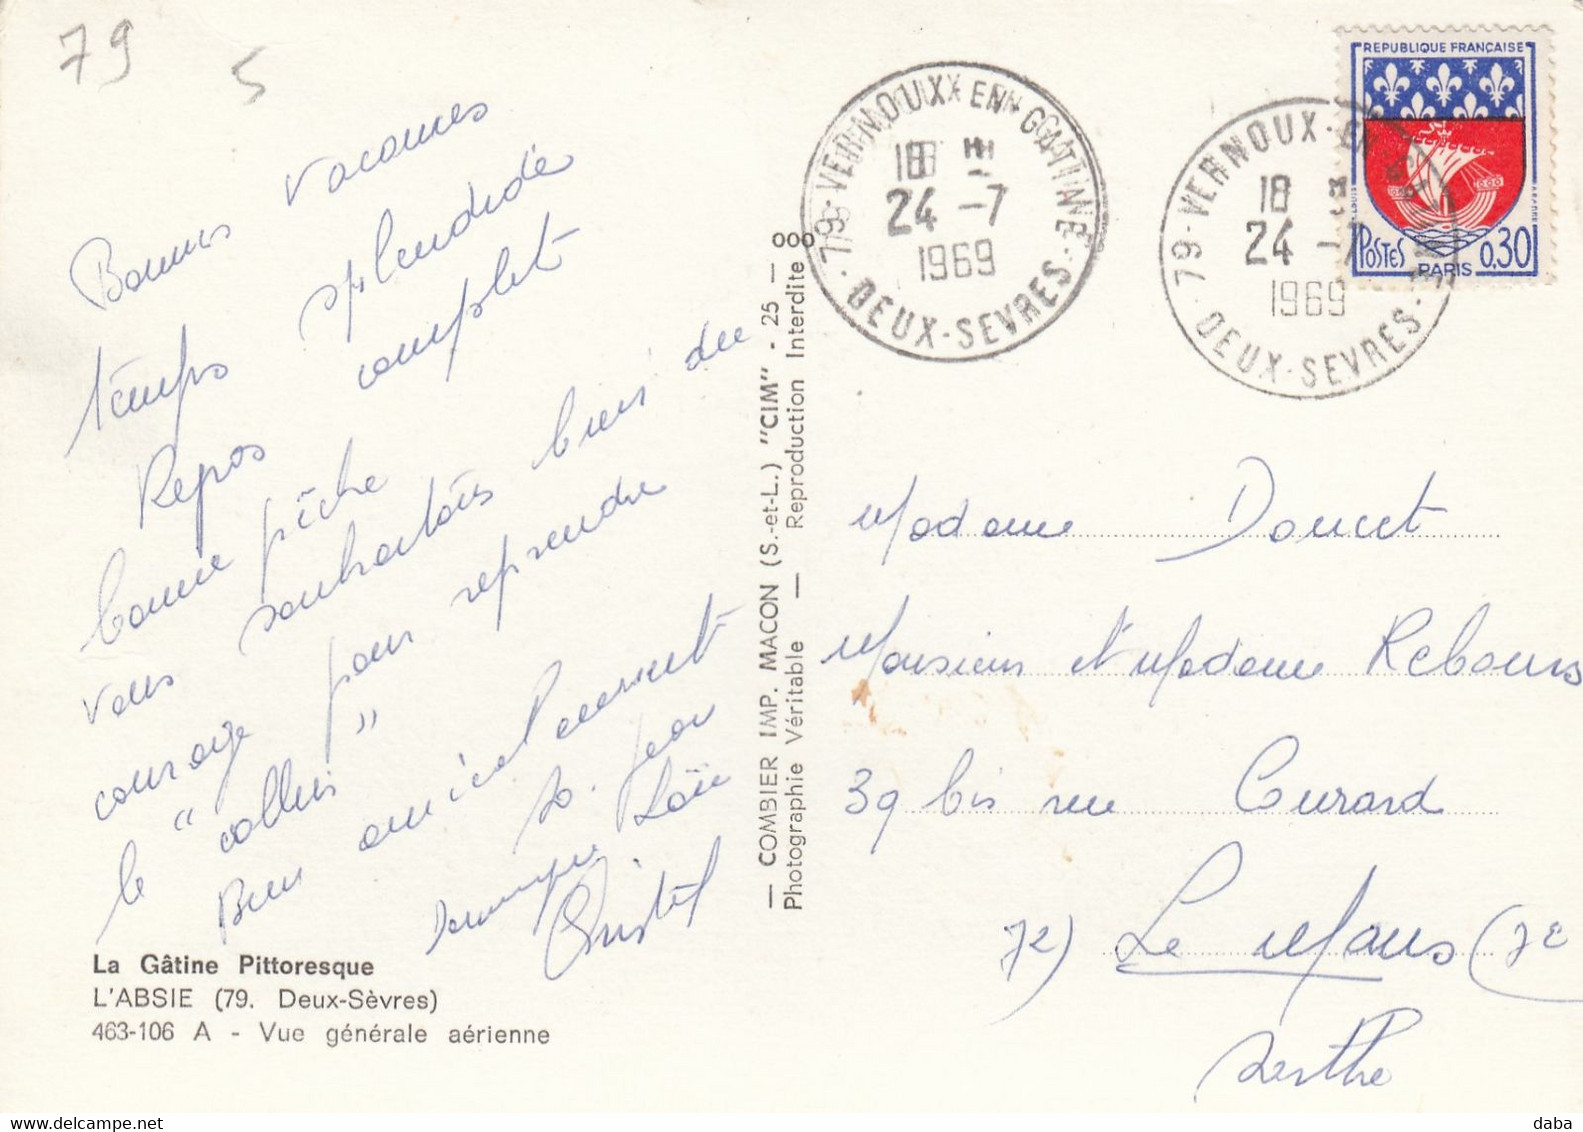 79 5
Bonnes vacances
temps splendide
Repos complet
bonne pêche
vous souhaitons bien du
courage pour reprendre
le " collier "
Bien amicalement
Jean
Dominique Loïc
Christel
La Gâtine Pittoresque
L'ABSIE (79. Deux-Sèvres)
463-106 A - Vue générale aérienne
— COMBIER IMP. MACON (S.-et-L.) "CIM" - 25 — ooo
Photographie Véritable — Reproduction Interdite
79 - VERNOUX - EN - GATINE
18 H
24 - 7
1969
DEUX-SEVRES
79 - VERNOUX - EN - GATINE
18 H
24 - 7
1969
DEUX-SEVRES
REPUBLIQUE FRANÇAISE
POSTES 0,30
PARIS
Madame Doucet
Monsieur et Madame Rebours
39 bis rue Cugnard
72) Le Mans (72
Sarthe
daba